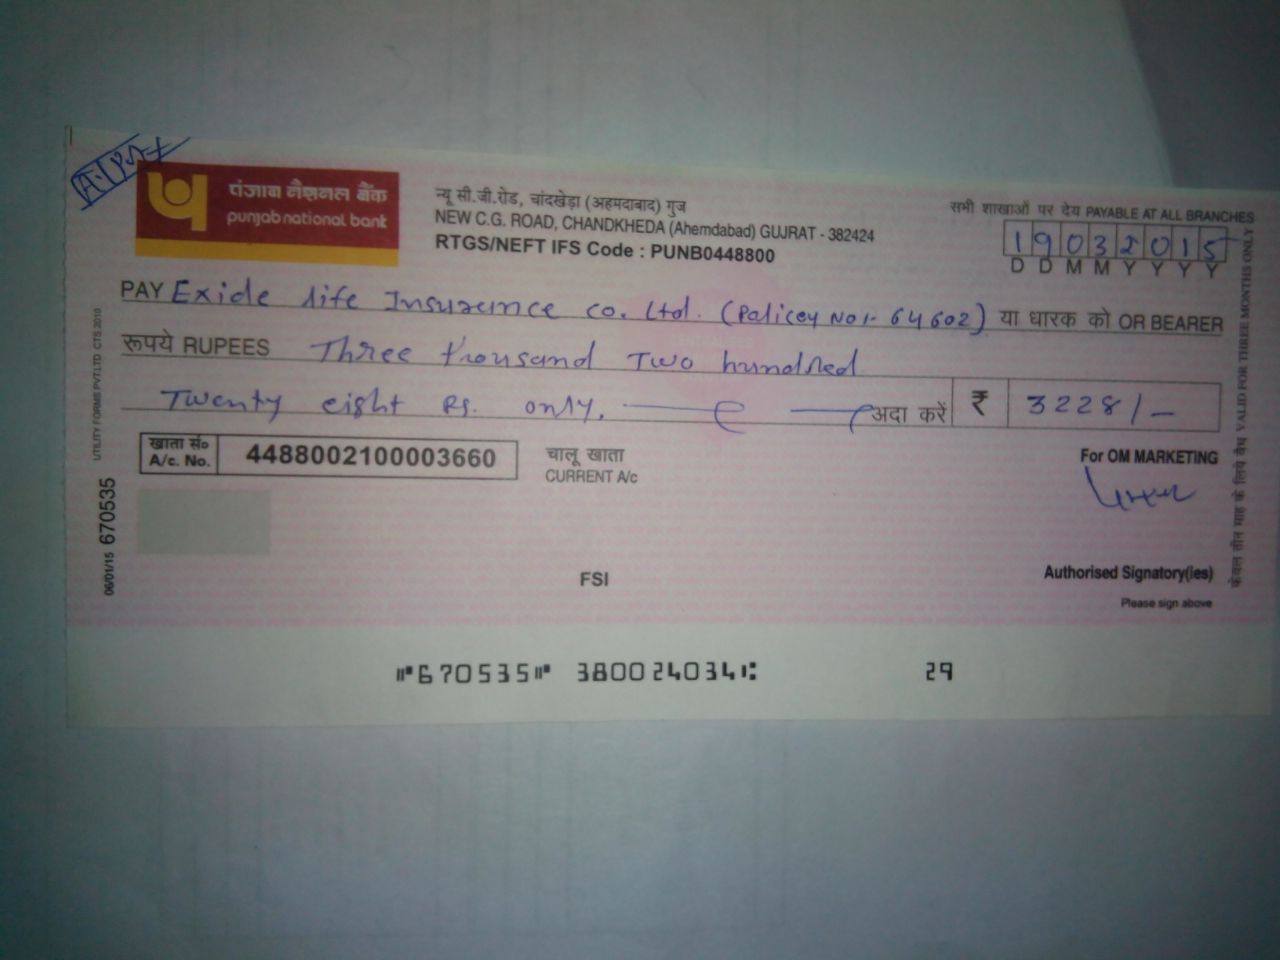 पंजाब नैशनल बैंक
punjab national bank
न्यू सी.जी.रोड, चांदखेड़ा (अहमदाबाद) गुज
NEW C.G. ROAD, CHANDKHEDA (Ahemdabad) GUJRAT - 382424
RTGS/NEFT IFS Code : PUNB0448800
सभी शाखाओं पर देय PAYABLE AT ALL BRANCHES
19032015
D D M M Y Y Y Y
PAY Exide life Insurence co. Ltd. (Policey No:- 64602) या धारक को OR BEARER
रूपये RUPEES Three thousand Two hundred
Twenty eight Rs. only. अदा करें ₹ 3228/-
खाता सं०
A/c. No. 4488002100003660
चालू खाता
CURRENT A/c
For OM MARKETING
FSI
Authorised Signatory(ies)
Please sign above
UTILITY FORMS PVT.LTD CTS 2010
06/01/15 670535
केवल तीन माह के लिये वैध VALID FOR THREE MONTHS ONLY
⑈670535⑈ 380024034⑆ 29